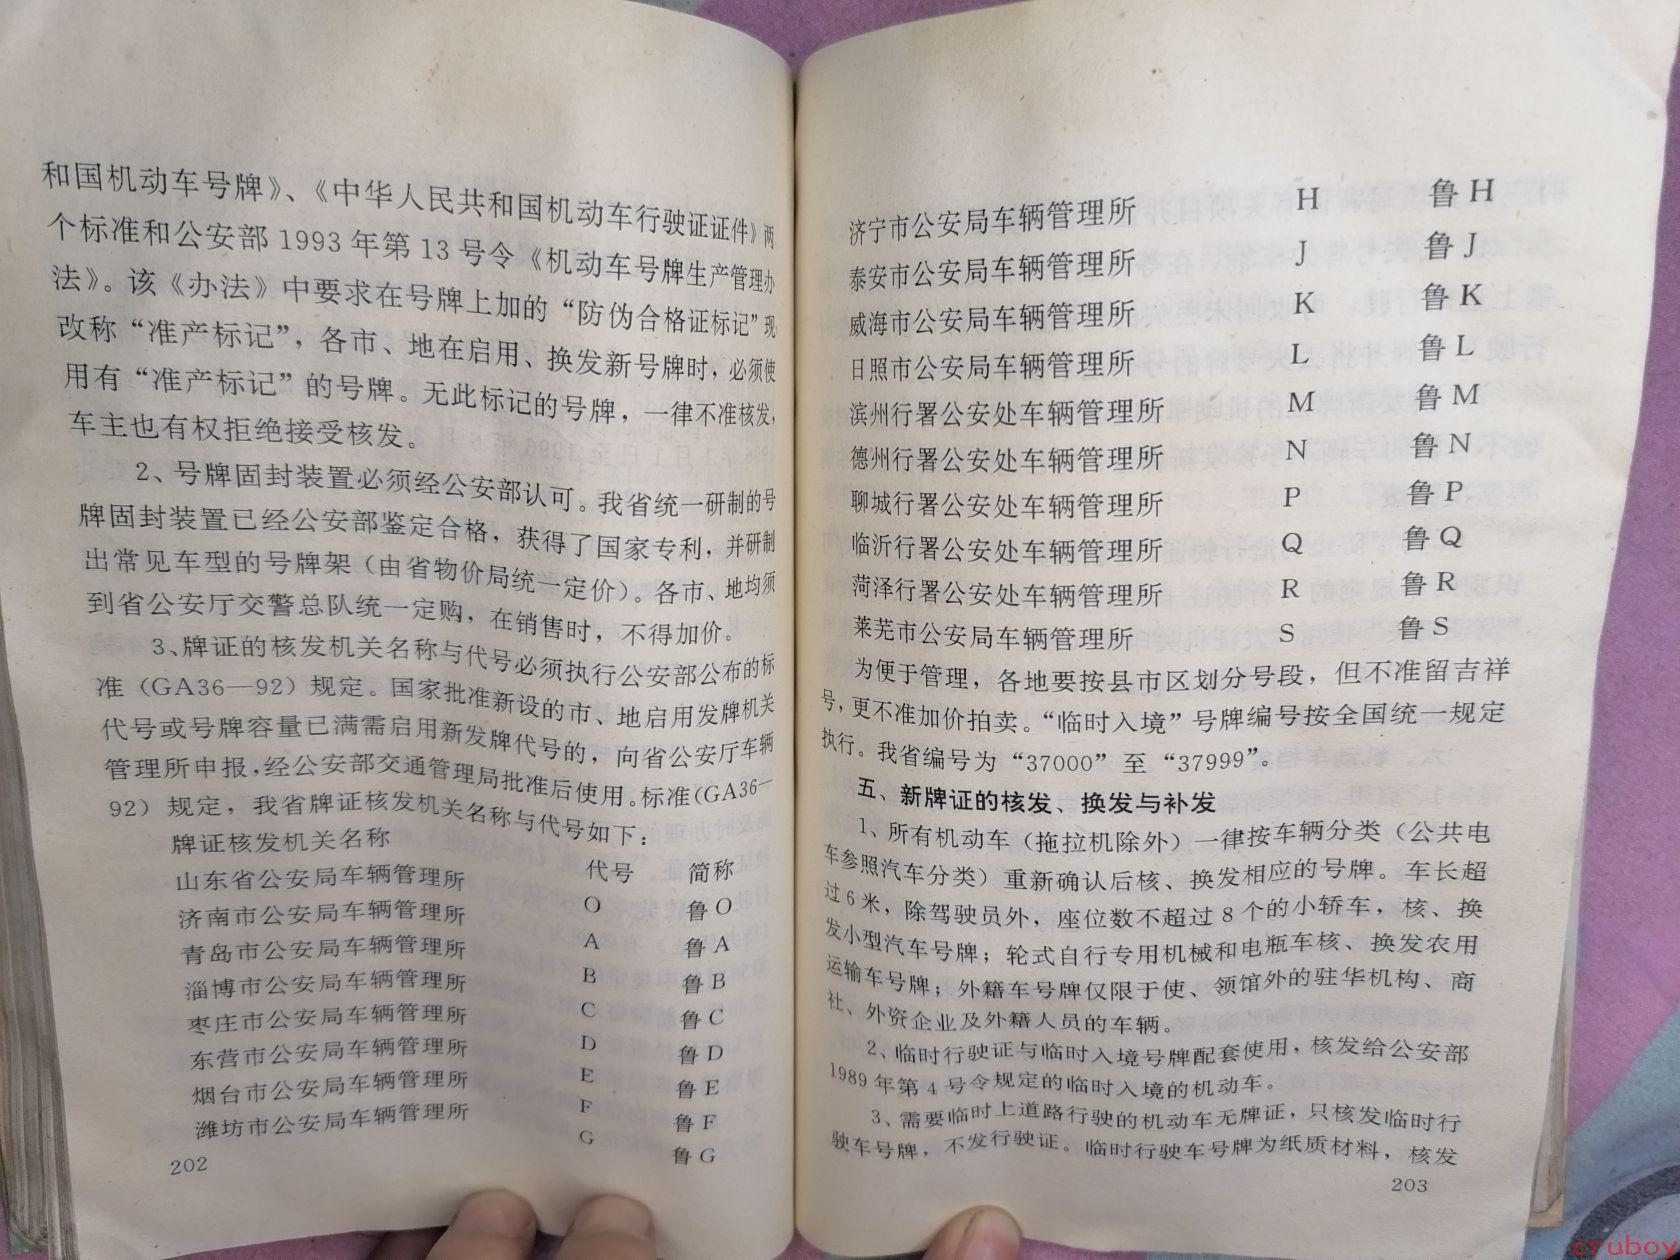 和国机动车号牌》、《中华人民共和国机动车行驶证证件》两
个标准和公安部1993年第13号令《机动车号牌生产管理办
法》。该《办法》中要求在号牌上加的“防伪合格证标记”现
改称“准产标记”，各市、地在启用、换发新号牌时，必须使
用有“准产标记”的号牌。无此标记的号牌，一律不准核发，
车主也有权拒绝接受核发。
2、号牌固封装置必须经公安部认可。我省统一研制的号
牌固封装置已经公安部鉴定合格，获得了国家专利，并研制
出常见车型的号牌架（由省物价局统一定价）。各市、地均须
到省公安厅交警总队统一定购，在销售时，不得加价。
3、牌证的核发机关名称与代号必须执行公安部公布的标
准（GA36—92）规定。国家批准新设的市、地启用发牌机关
代号或号牌容量已满需启用新发牌代号的，向省公安厅车辆
管理所申报，经公安部交通管理局批准后使用。标准（GA36—
92）规定，我省牌证核发机关名称与代号如下：
牌证核发机关名称 代号 简称
山东省公安局车辆管理所 O 鲁O
济南市公安局车辆管理所 A 鲁A
青岛市公安局车辆管理所 B 鲁B
淄博市公安局车辆管理所 C 鲁C
枣庄市公安局车辆管理所 D 鲁D
东营市公安局车辆管理所 E 鲁E
烟台市公安局车辆管理所 F 鲁F
潍坊市公安局车辆管理所 G 鲁G
202
济宁市公安局车辆管理所 H 鲁H
泰安市公安局车辆管理所 J 鲁J
威海市公安局车辆管理所 K 鲁K
日照市公安局车辆管理所 L 鲁L
滨州行署公安处车辆管理所 M 鲁M
德州行署公安处车辆管理所 N 鲁N
聊城行署公安处车辆管理所 P 鲁P
临沂行署公安处车辆管理所 Q 鲁Q
菏泽行署公安处车辆管理所 R 鲁R
莱芜市公安局车辆管理所 S 鲁S
为便于管理，各地要按县市区划分号段，但不准留吉祥
号，更不准加价拍卖。“临时入境”号牌编号按全国统一规定
执行。我省编号为“37000”至“37999”。
五、新牌证的核发、换发与补发
1、所有机动车（拖拉机除外）一律按车辆分类（公共电
车参照汽车分类）重新确认后核、换发相应的号牌。车长超
过6米，除驾驶员外，座位数不超过8个的小轿车，核、换
发小型汽车号牌；轮式自行专用机械和电瓶车核、换发农用
运输车号牌；外籍车号牌仅限于使、领馆外的驻华机构、商
社、外资企业及外籍人员的车辆。
2、临时行驶证与临时入境号牌配套使用，核发给公安部
1989年第4号令规定的临时入境的机动车。
3、需要临时上道路行驶的机动车无牌证，只核发临时行
驶车号牌，不发行驶证。临时行驶车号牌为纸质材料，核发
203
cruboy